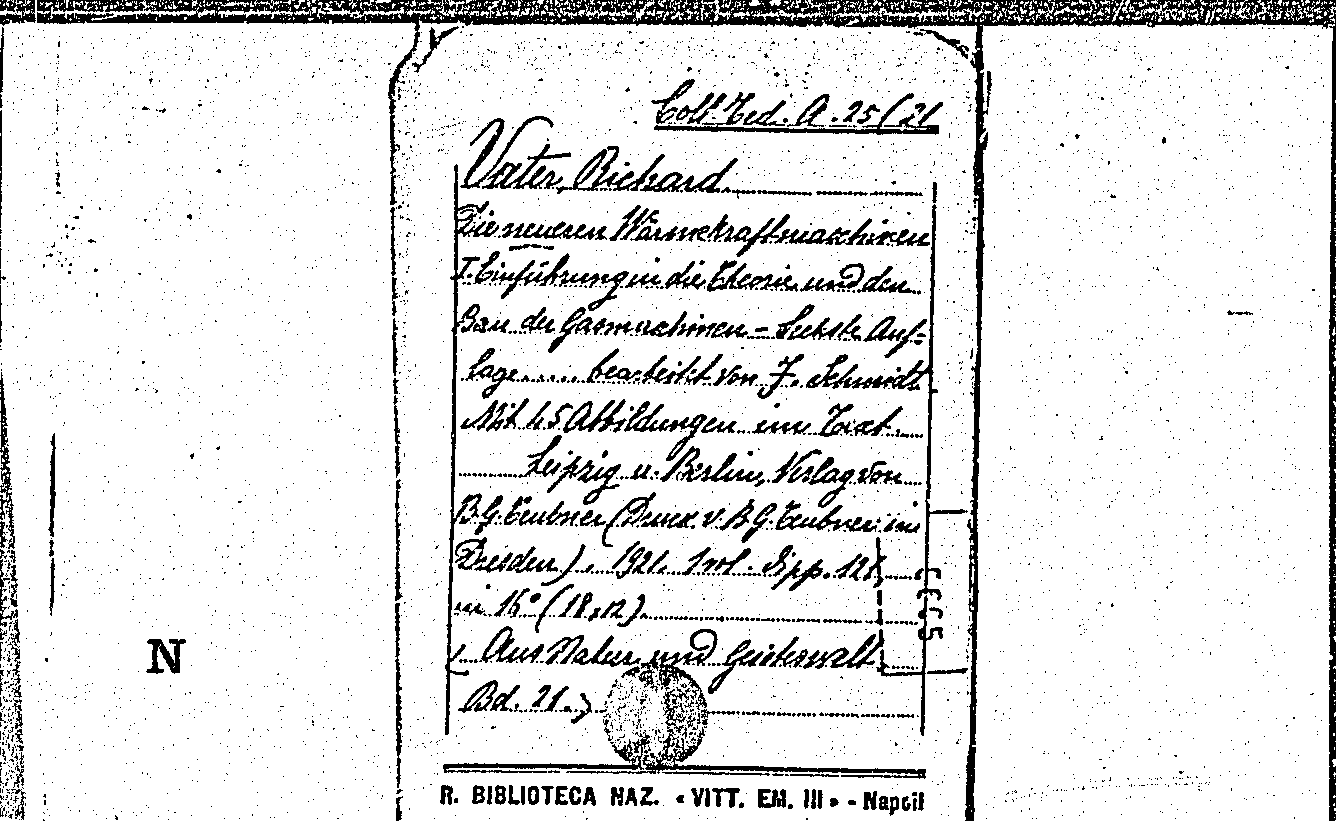 Coll. Ted. A. 25/21
Vater, Richard
Die neueren Wärmekraftmaschinen
I. Einführung in die Theorie und den
Bau der Gasmaschinen - Sechste Auf=
lage..... bearbeitet von F. Schmidt
Mit 45 Abbildungen im Text.
Leipzig u. Berlin, Verlag von
B. G. Teubner (Druck v. B. G. Teubner in
Dresden). 1921. 1 vol. pp. 121
in 16° (18,12).
Aus Natur und Geisteswelt
Bd. 21.)
N
R. BIBLIOTECA NAZ. « VITT. EM. III » - Napoli